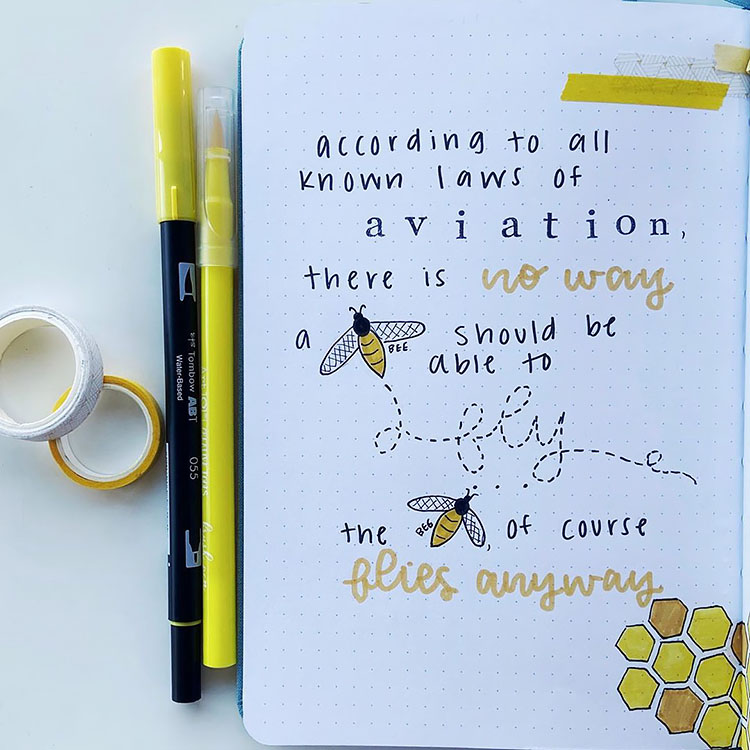 according to all
known laws of
aviation,
there is no way
a BEE should be
able to
fly
...
the BEE, of course
flies anyway
Tombow ABT
Water-Based
055